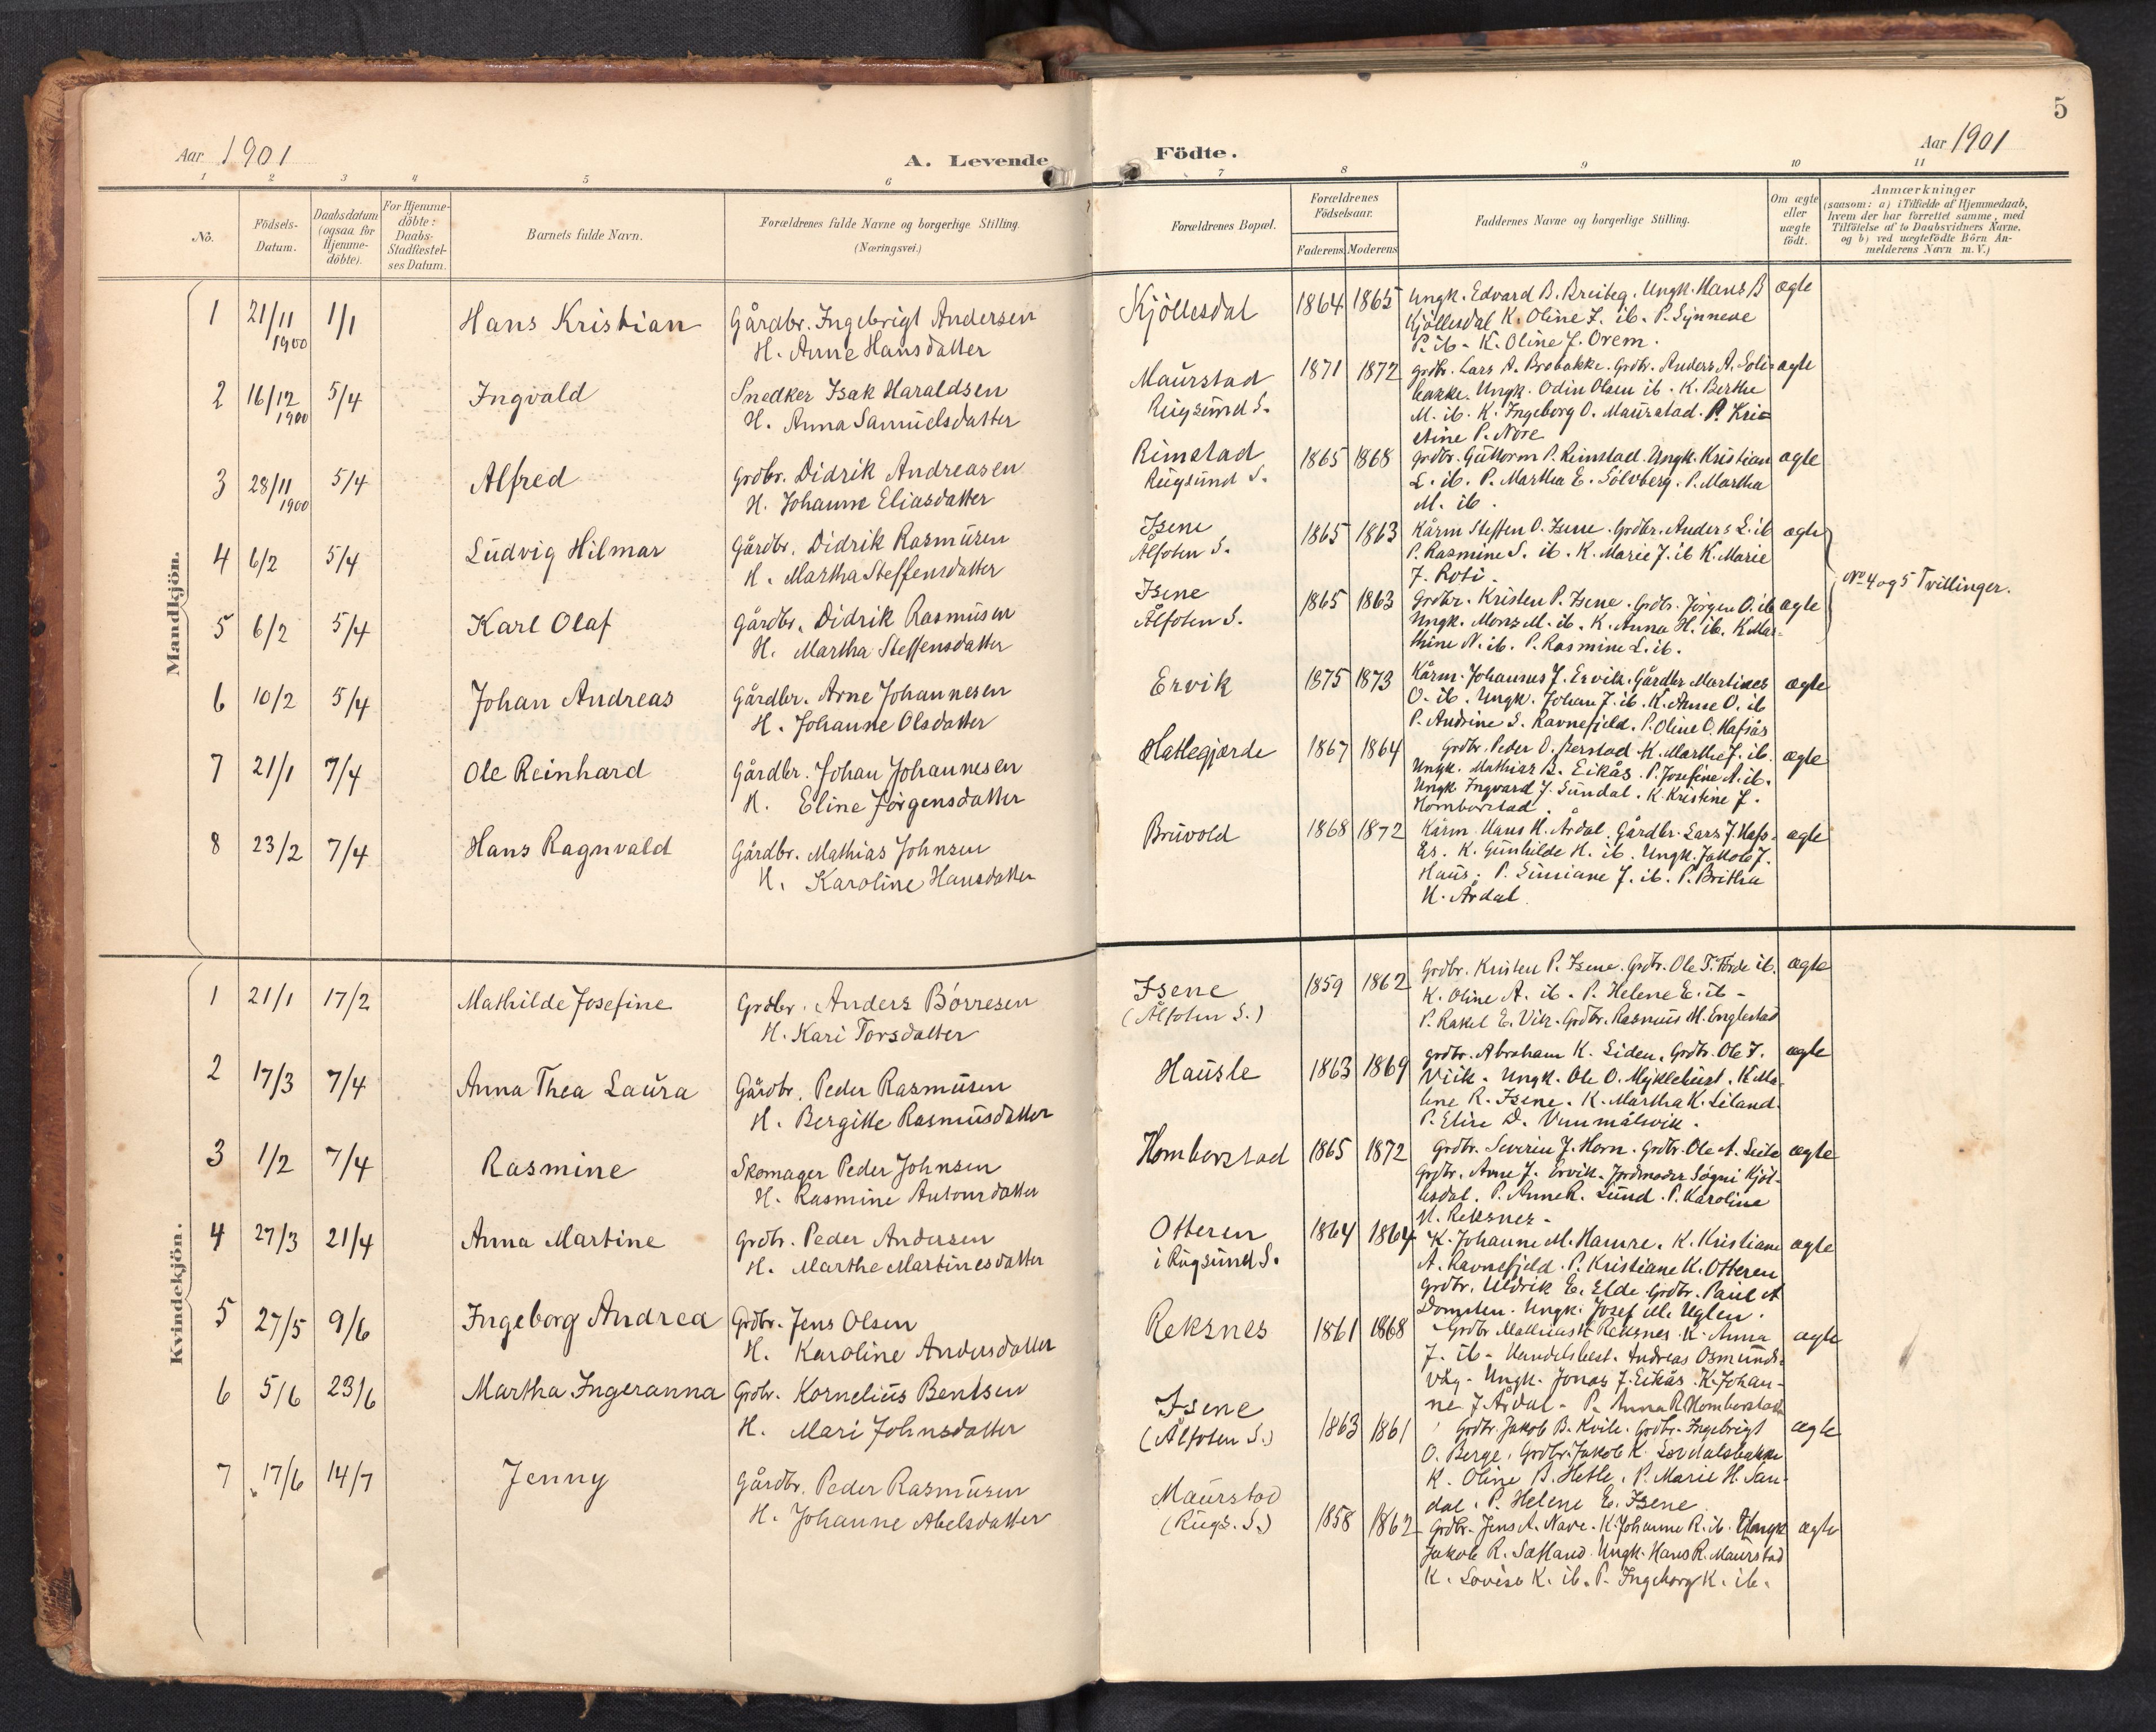 5
Aar 1901
A. Levende
Födte.
Aar 1901
1 2 3 4 5 6 7 8 9 10 11
No.
Födsels-
Datum.
Daabsdatum
(ogsaa for
Hjemme-
döbte).
For Hjemme-
döbte:
Daabs-
Stadfæstel-
ses Datum.
Barnets fulde Navn.
Forældrenes fulde Navne og borgerlige Stilling.
(Næringsvei.)
Forældrenes Bopæl.
Forældrenes
Födselsaar.
Faderens Moderens
Faddernes Navne og borgerlige Stilling.
Om ægte
eller
uægte
födt.
Anmærkninger
(saasom: a) i Tilfælde af Hjemmedaab,
hvem der har forrettet samme, med
Tilföielse af to Daabsvidners Navne,
og b) ved uægtefödte Börn An-
melderens Navn m.V.)
Mandkjön.
1 21/11 1900 1/1 Hans Kristian Gårdbr. Ingebrigt Andersen
H. Anne Hansdatter
Kjöllesdal 1864 1865 Ungk. Edvard B. Breibeg. Ungk. Hans B ægte
Kjöllesdal K. Oline J. ib. P. Synneve
P. ib. K. Oline J. Orem.
2 16/12 1900 5/4 Ingvald Snedker Isak Haraldsen
H. Anna Samuelsdatter
Maurstad
Rugsund S.
1871 1872 grdbr. Lars A. Brobakke. Grdbr. Anders A. Soli- ægte
bakke. Ungk. Odin Olsen ib. K. Berthe
M. ib. K. Ingeborg O. Maurstad. P. Kri-
stine P. Nore
3 28/11 1900 5/4 Alfred Grdbr. Didrik Andreasen
H. Johanne Eliasdatter
Rimstad
Rugsund S.
1865 1868 grdbr. Guttorm P. Rimstad. Ungk. Kristian ægte
L. ib. P. Martha E. Sölvberg. P. Martha
M. ib.
4 6/2 5/4 Ludvig Hilmar Gårdbr. Didrik Rasmusen
H. Martha Steffensdatter
Isene
Ålfoten S.
1865 1863 Kårm Steffen O. Isene. Grdbr. Anders L. ib ægte
P. Rasmine S. ib. K. Marie J. ib K. Marie
J. Roti.
No 4 og 5 Tvillinger.
5 6/2 5/4 Karl Olaf Gårdbr. Didrik Rasmusen
H. Martha Steffensdatter
Isene
Ålfoten S.
1865 1863 Grdbr. Kristen P. Isene. Grdbr. Jörgen O. ib ægte
Ungk. Mons M. ib. K. Anna H. ib. K Mar-
thine N. ib. P. Rasmine L. ib.
6 10/2 5/4 Johan Andreas Gårdbr. Arne Johannesen
H. Johanne Olsdatter
Ervik 1875 1873 Kårm. Johannes J. Ervik. Gårdbr Martines ægte
O. ib. Ungk. Johan J. ib. K. Anne O. ib
P. Andrine S. Ravnefjeld. P. Oline O. Hafsås
7 21/1 7/4 Ole Reinhard Gårdbr. Johan Johannesen
H. Eline Jörgensdatter
Hatlegjærde 1867 1864 Grdbr. Peder O. Berstad. K. Marthe J. ib. ægte
Ungk. Mathias B. Eikås. P. Josefine A. ib.
Ungk Ingvard J. Sundal. K. Kristine J.
Homborstad.
8 23/2 7/4 Hans Ragnvald Gårdbr. Mathias Johnsen
H. Karoline Hansdatter
Bruvold 1868 1872 Kårm. Hans H. Årdal. Gårdbr. Lars J. Hafs- ægte
ås. K. Gunhilde H. ib. Ungk. Jakob J.
Haus. P. Simiane J. ib. P. Britha
H. Årdal.
Kvindekjön.
1 21/1 17/2 Mathilde Josefine Grdbr. Anders Börresen
H. Kari Torsdatter
Isene
(Ålfoten S.)
1859 1862 Grdbr. Kristen P. Isene. Grdbr. Ole T. Förde ib. ægte
K. Oline A. ib. P. Helene E. ib -
P. Rakel E. Vik. Grdbr. Rasmus M. Englestad
2 17/3 7/4 Anna Thea Laura Gårdbr. Peder Rasmusen
H. Bergitte Rasmusdatter
Hausle 1863 1869 grdbr. Abraham K. Liden. Grdbr. Ole J. ægte
Viik. Ungk. Ole O. Myklebust. K Ma-
lene R. Isene. K. Martha K. Leiland.
P. Elise D. Vemmålsvik.
3 1/2 7/4 Rasmine Skomager Peder Johnsen
H. Rasmine Antonsdatter
Homborstad 1865 1872 Grdbr. Severin J. Horn. Grdbr. Ole A. Leite ægte
Grdbr. Arne J. Ervik. Jordmoder Sögni Kjöl-
lesdal. P. Anne R. Lund. P. Karoline
H. Reksnes.
4 27/3 21/4 Anna Martine Grdbr. Peder Andersen
H. Marthe Martinesdatter
Otteren
i Rugsund S.
1864 1864 K. Johanne M. Hamre. K. Kristiane ægte
A. Ravnefjeld. P. Kristiane K. Otteren
Grdbr. Uldrik E. Elde. Grdbr. Paul A
Domsten. Ungk. Josef M. Uglen.
5 27/5 9/6 Ingeborg Andrea Grdbr. Jens Olsen
H. Karoline Andersdatter
Reksnes 1861 1868 Grdbr Mathias H Reksnes. K. Anna ægte
J. ib. Handelsbest. Andreas Osmunds-
våg. Ungk. Jonas J. Eikås. K. Johan-
ne J. Årdal. P. Anna R Homborstad
6 5/6 23/6 Martha Ingeranna Grdbr. Kornelius Bentsen
H. Mari Johnsdatter
Isene
(Ålfoten S.)
1863 1861 Grdbr. Jakob B. Kvile. Grdbr. Ingebrigt ægte
O. Berge. Grdbr. Jakob K.
K. Oline B. Hetle. P. Marie H. San-
dal. P. Helene E. Isene
7 17/6 14/7 Jenny Gårdbr. Peder Rasmusen
H. Johanne Abelsdatter
Maurstad
(Rugs. S.)
1858 1862 Grdbr. Jens A. Nave. K. Johanne R. ib. Ungk ægte
Jakob R. Sætland. Ungk. Hans R. Maurstad
K. Lovise K. ib. P. Ingeborg K. ib.